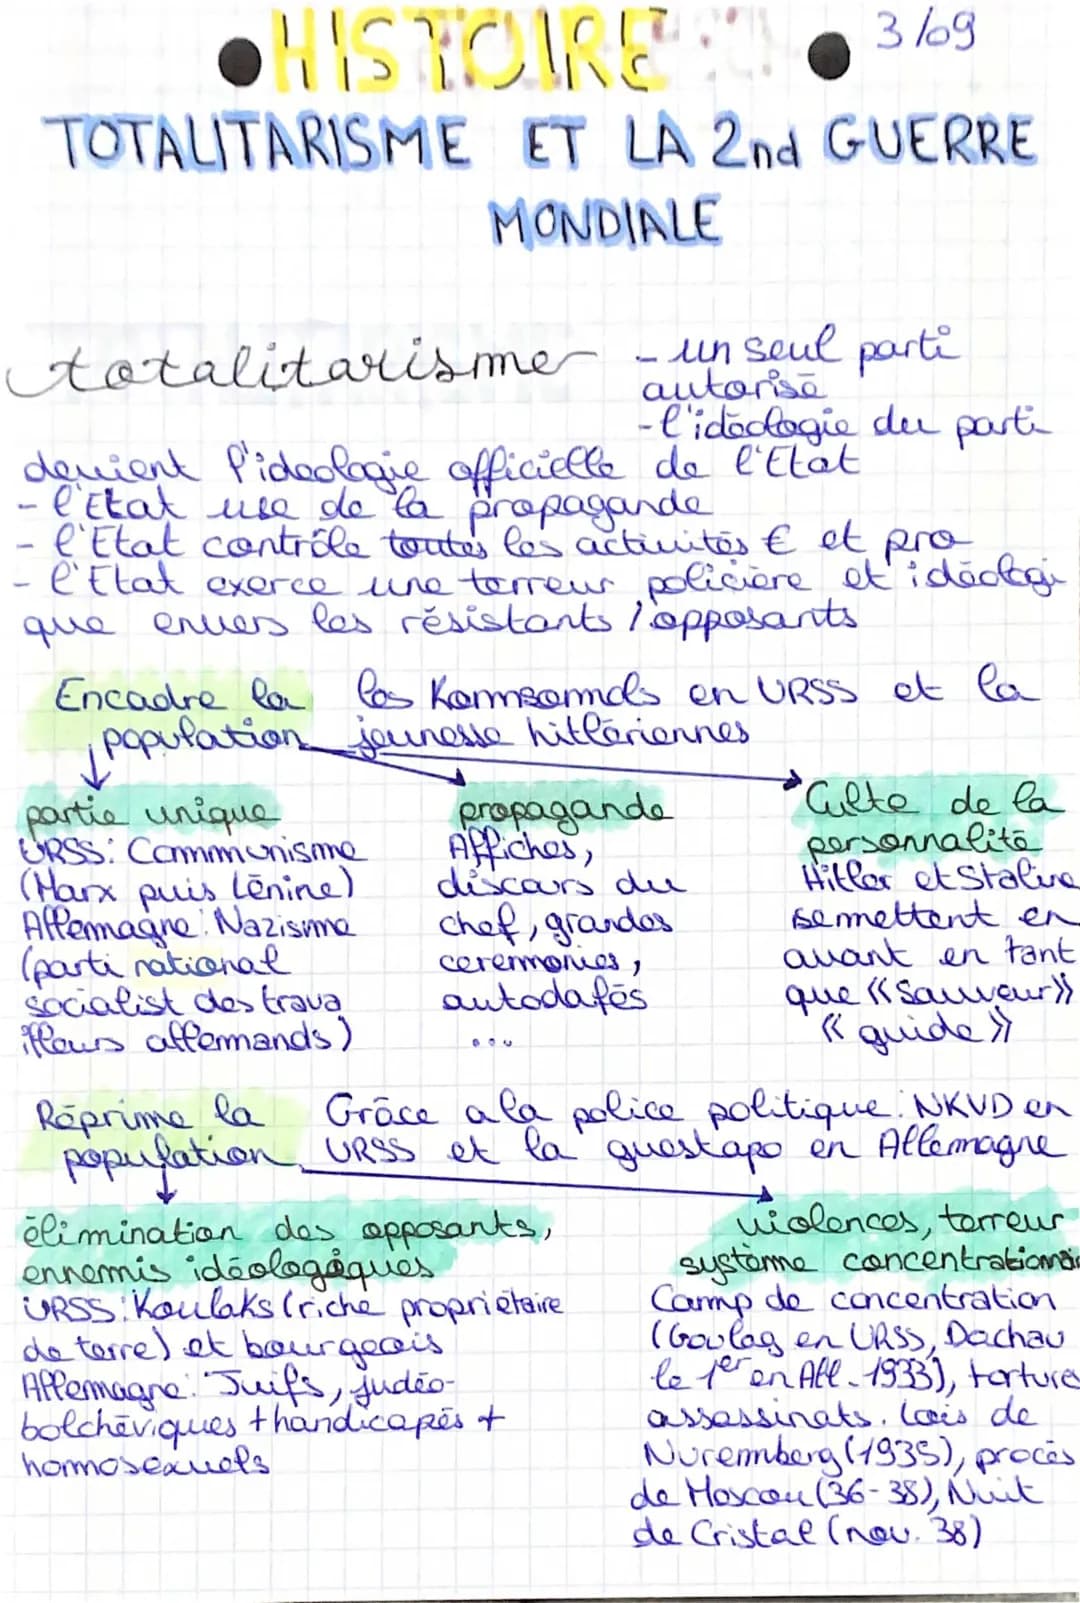 HISTOIRE 3/09
TOTALITARISME ET LA 2nd GUERRE
MONDIALE
totalitarisme - un seul parti
autorisé
- l'idéologie du parti
devient l'ideologie officielle de l'Etat
- l'Etat use de la propagande
- l'Etat contrôle toutes les activités € et pro
- l'Etat exerce une terreur policière et idéologi
que envers les résistants / opposants
Encadre la les Komsomols en URSS et la
population jeunesse hitlériennes
partie unique
URSS: Communisme
(Marx puis Lénine)
Allemagne: Nazisme
(parti national
socialist des trava
illeurs allemands)
propagande
Affiches,
discours du
chef, grandes
ceremonies,
autodafés
...
Culte de la
personnalité
Hitler et Staline
se mettent en
avant en tant
que «Sauveur»
«guide»
Réprime la Grâce a la police politique: NKVD en
population URSS et la guestapo en Allemagne
élimination des opposants,
ennemis idéologiques
URSS: Koulaks (riche propriétaire
de terre) et bourgeois
Allemagne: Juifs, judéo-
bolchéviques + handicapés +
homosexuels
violences, terreur
système concentrationai
Camp de concentration
(Goulag en URSS, Dachau
le 1er en All. 1933), tortures
assassinats. Lois de
Nuremberg (1935), procès
de Moscou (36-38), Nuit
de Cristal (nov. 38)